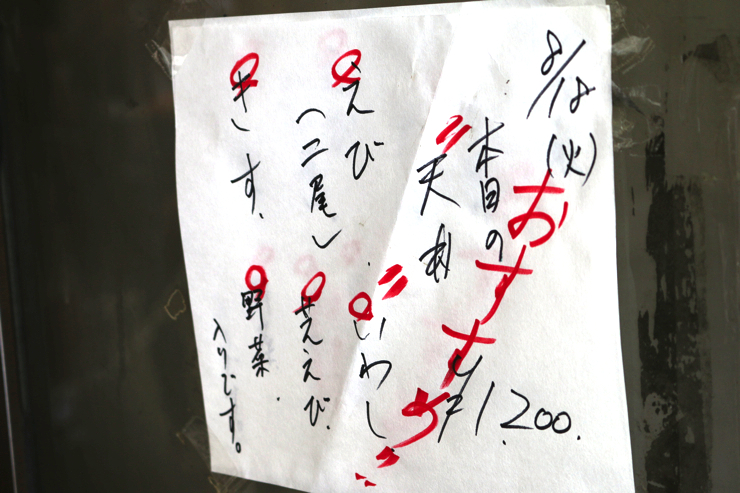 8/18(火)
おすすめ
本日の
〃天刺〃
¥1,200.
えび(二尾)
いわし
きす、
甘えび、
野菜
入りです。